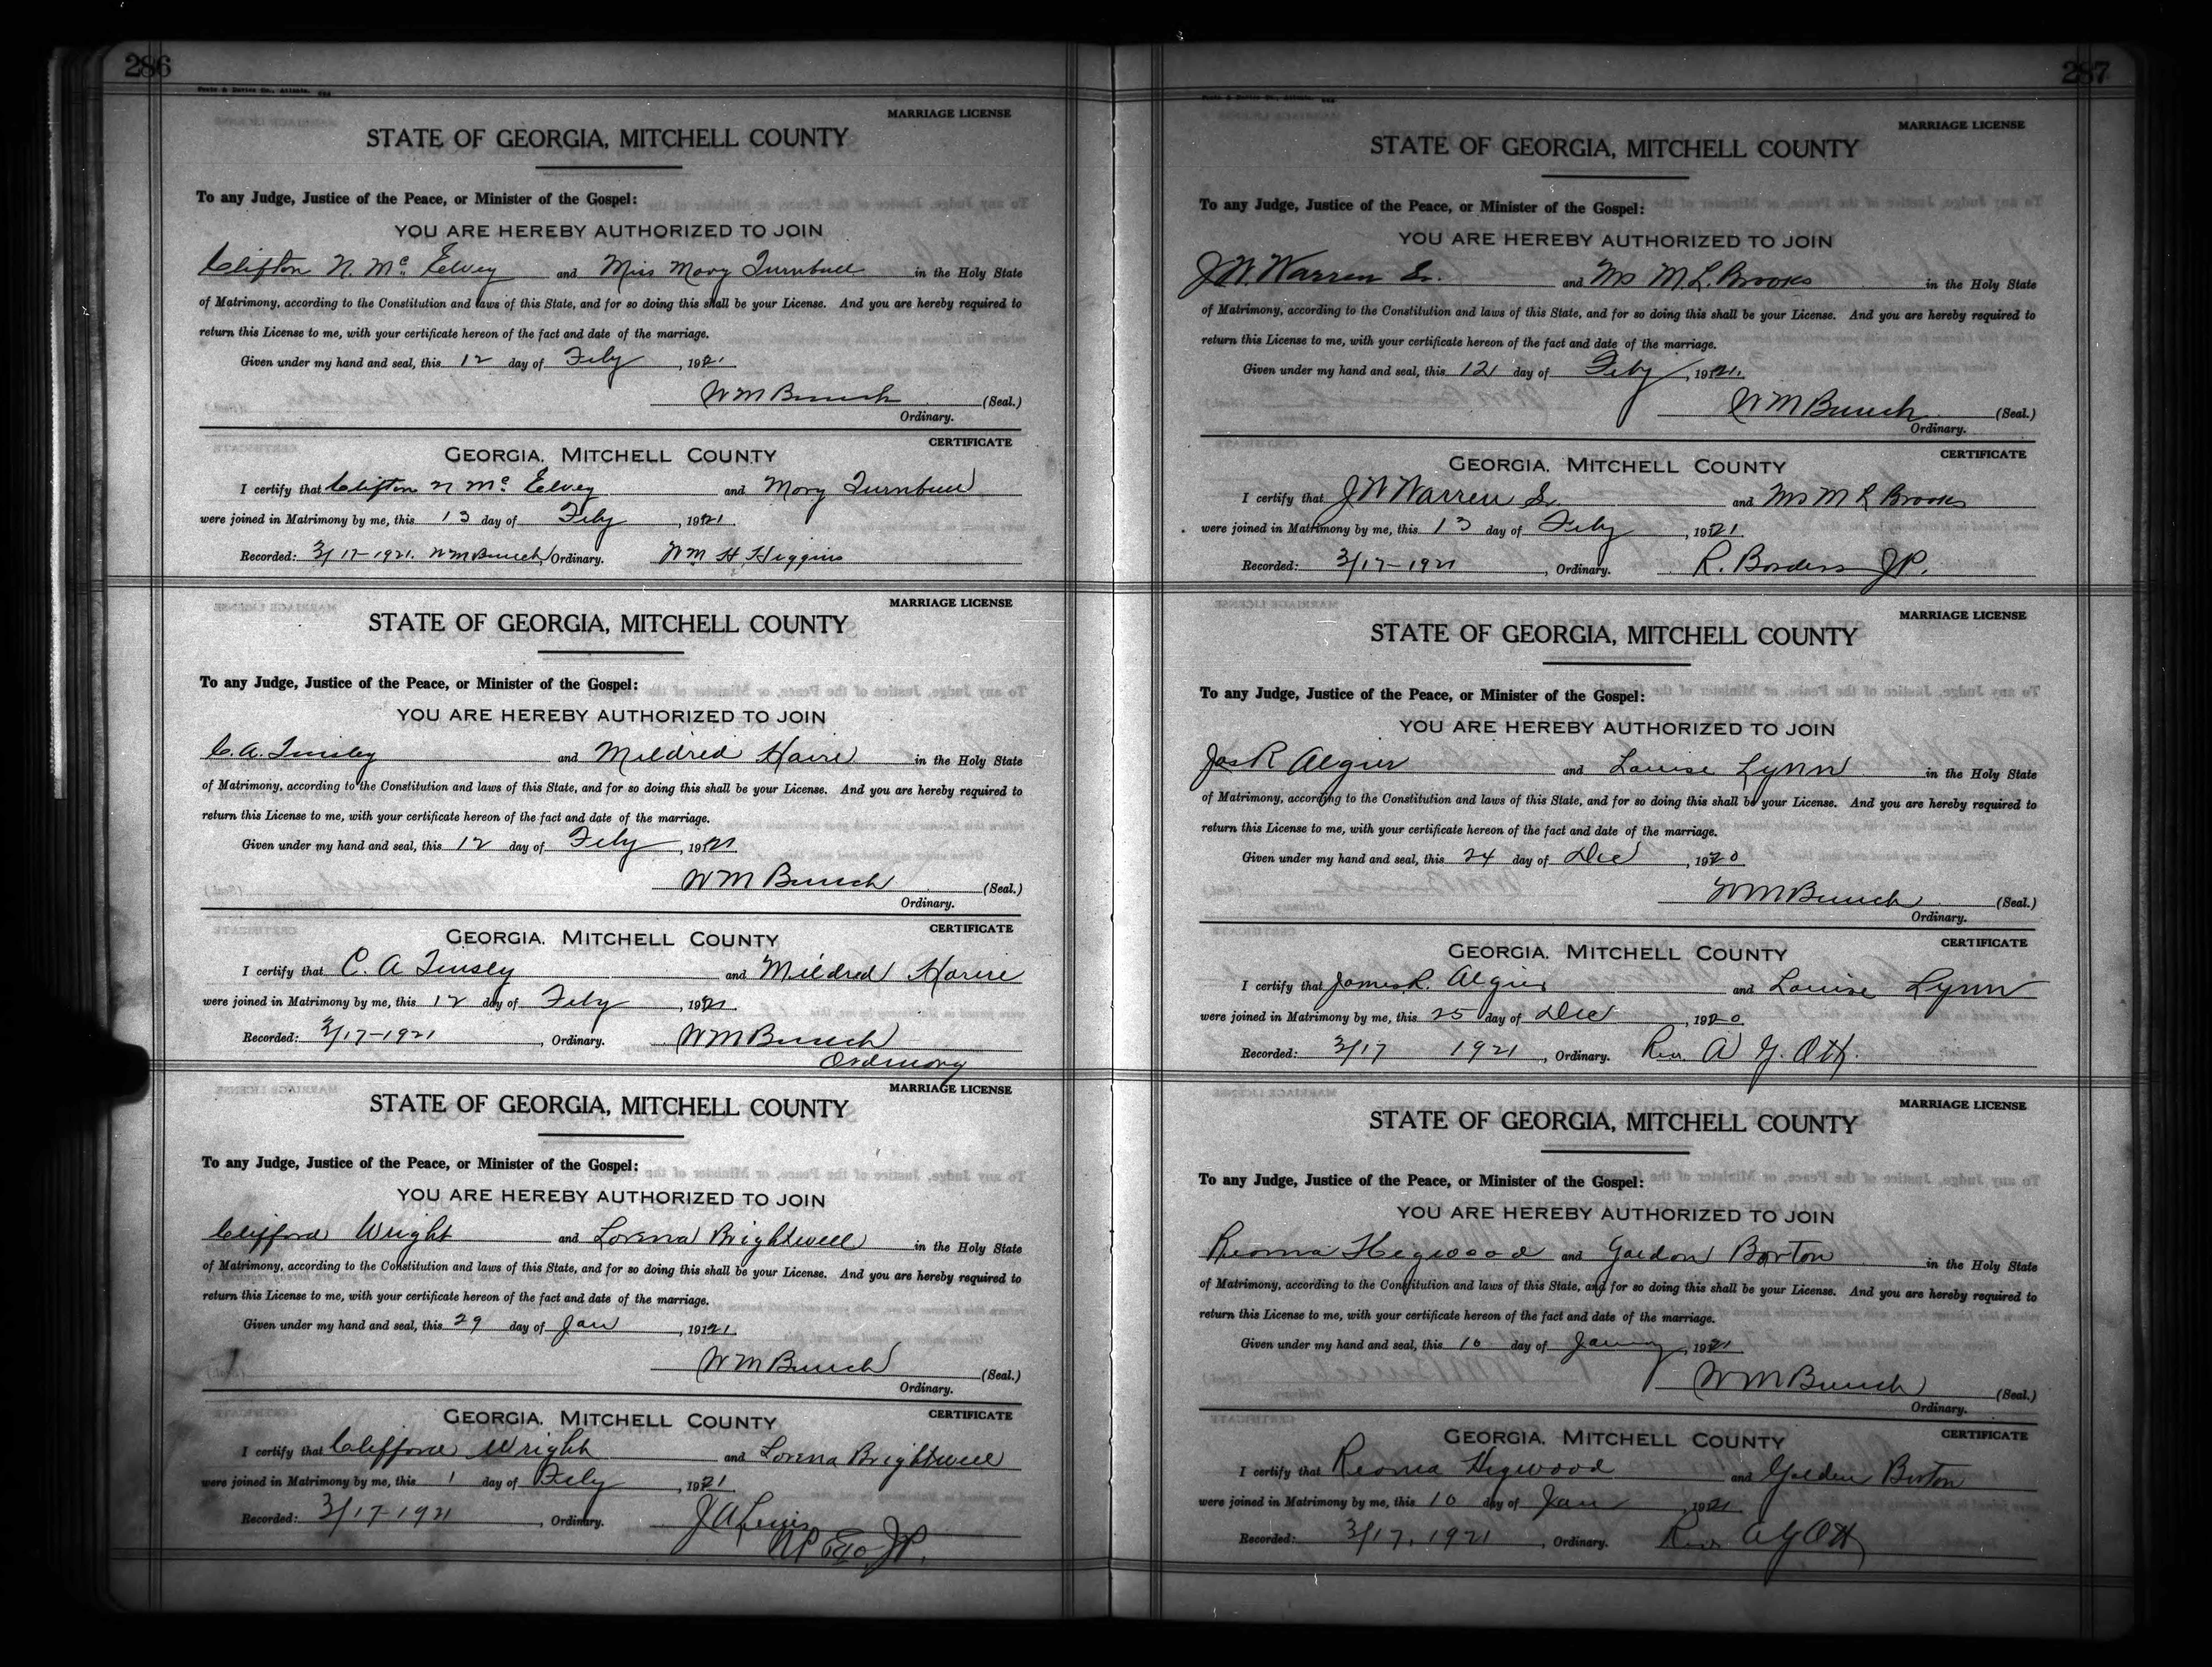 286
MARRIAGE LICENSE
STATE OF GEORGIA, MITCHELL COUNTY
To any Judge, Justice of the Peace, or Minister of the Gospel:
YOU ARE HEREBY AUTHORIZED TO JOIN
Clifton N. Mc Elvey and Miss Mary Turnbull in the Holy State
of Matrimony, according to the Constitution and laws of this State, and for so doing this shall be your License. And you are hereby required to
return this License to me, with your certificate hereon of the fact and date of the marriage.
Given under my hand and seal, this 12 day of Feby, 1921.
W M Bunch (Seal.)
Ordinary.
CERTIFICATE
GEORGIA, MITCHELL COUNTY
I certify that Clifton N Mc Elvey and Mary Turnbull
were joined in Matrimony by me, this 13 day of Feby, 1921.
Recorded: 3/17-1921. W M Bunch, Ordinary. Wm H. Higgins
MARRIAGE LICENSE
STATE OF GEORGIA, MITCHELL COUNTY
To any Judge, Justice of the Peace, or Minister of the Gospel:
YOU ARE HEREBY AUTHORIZED TO JOIN
C. A. Tinsley and Mildred Haire in the Holy State
of Matrimony, according to the Constitution and laws of this State, and for so doing this shall be your License. And you are hereby required to
return this License to me, with your certificate hereon of the fact and date of the marriage.
Given under my hand and seal, this 12 day of Feby, 1921.
W M Bunch (Seal.)
Ordinary.
CERTIFICATE
GEORGIA, MITCHELL COUNTY
I certify that C. A Tinsley and Mildred Haire
were joined in Matrimony by me, this 12 day of Feby, 1921.
Recorded: 3/17-1921, Ordinary. W M Bunch
Ordinary
MARRIAGE LICENSE
STATE OF GEORGIA, MITCHELL COUNTY
To any Judge, Justice of the Peace, or Minister of the Gospel:
YOU ARE HEREBY AUTHORIZED TO JOIN
Clifford Wright and Lorena Brightwell in the Holy State
of Matrimony, according to the Constitution and laws of this State, and for so doing this shall be your License. And you are hereby required to
return this License to me, with your certificate hereon of the fact and date of the marriage.
Given under my hand and seal, this 29 day of Jan, 1921.
W M Bunch (Seal.)
Ordinary.
CERTIFICATE
GEORGIA, MITCHELL COUNTY
I certify that Clifford Wright and Lorena Brightwell
were joined in Matrimony by me, this 1 day of Feby, 1921
Recorded: 3/17-1921, Ordinary. J A Lewis
NP JP.
287
MARRIAGE LICENSE
STATE OF GEORGIA, MITCHELL COUNTY
To any Judge, Justice of the Peace, or Minister of the Gospel:
YOU ARE HEREBY AUTHORIZED TO JOIN
J. W. Warren Sr. and Mrs M. L. Brooks in the Holy State
of Matrimony, according to the Constitution and laws of this State, and for so doing this shall be your License. And you are hereby required to
return this License to me, with your certificate hereon of the fact and date of the marriage.
Given under my hand and seal, this 12 day of Feby, 1921.
W M Bunch (Seal.)
Ordinary.
CERTIFICATE
GEORGIA, MITCHELL COUNTY
I certify that J W Warren Sr. and Mrs M L Brooks
were joined in Matrimony by me, this 13 day of Feby, 1921.
Recorded: 3/17-1921, Ordinary. R. Borders JP.
MARRIAGE LICENSE
STATE OF GEORGIA, MITCHELL COUNTY
To any Judge, Justice of the Peace, or Minister of the Gospel:
YOU ARE HEREBY AUTHORIZED TO JOIN
Jas R Algier and Louise Lynn in the Holy State
of Matrimony, according to the Constitution and laws of this State, and for so doing this shall be your License. And you are hereby required to
return this License to me, with your certificate hereon of the fact and date of the marriage.
Given under my hand and seal, this 24 day of Dec, 1920
W M Bunch (Seal.)
Ordinary.
CERTIFICATE
GEORGIA, MITCHELL COUNTY
I certify that James R. Algier and Louise Lynn
were joined in Matrimony by me, this 25 day of Dec, 1920
Recorded: 3/17 1921, Ordinary. Rev. A Y. Ott.
MARRIAGE LICENSE
STATE OF GEORGIA, MITCHELL COUNTY
To any Judge, Justice of the Peace, or Minister of the Gospel:
YOU ARE HEREBY AUTHORIZED TO JOIN
Reoma Hegwood and Goldon Barton in the Holy State
of Matrimony, according to the Constitution and laws of this State, and for so doing this shall be your License. And you are hereby required to
return this License to me, with your certificate hereon of the fact and date of the marriage.
Given under my hand and seal, this 10 day of January, 1921
W M Bunch (Seal.)
Ordinary.
CERTIFICATE
GEORGIA, MITCHELL COUNTY
I certify that Reoma Hegwood and Golden Barton
were joined in Matrimony by me, this 10 day of Jan, 1921
Recorded: 3/17, 1921, Ordinary. Rev. A Y Ott